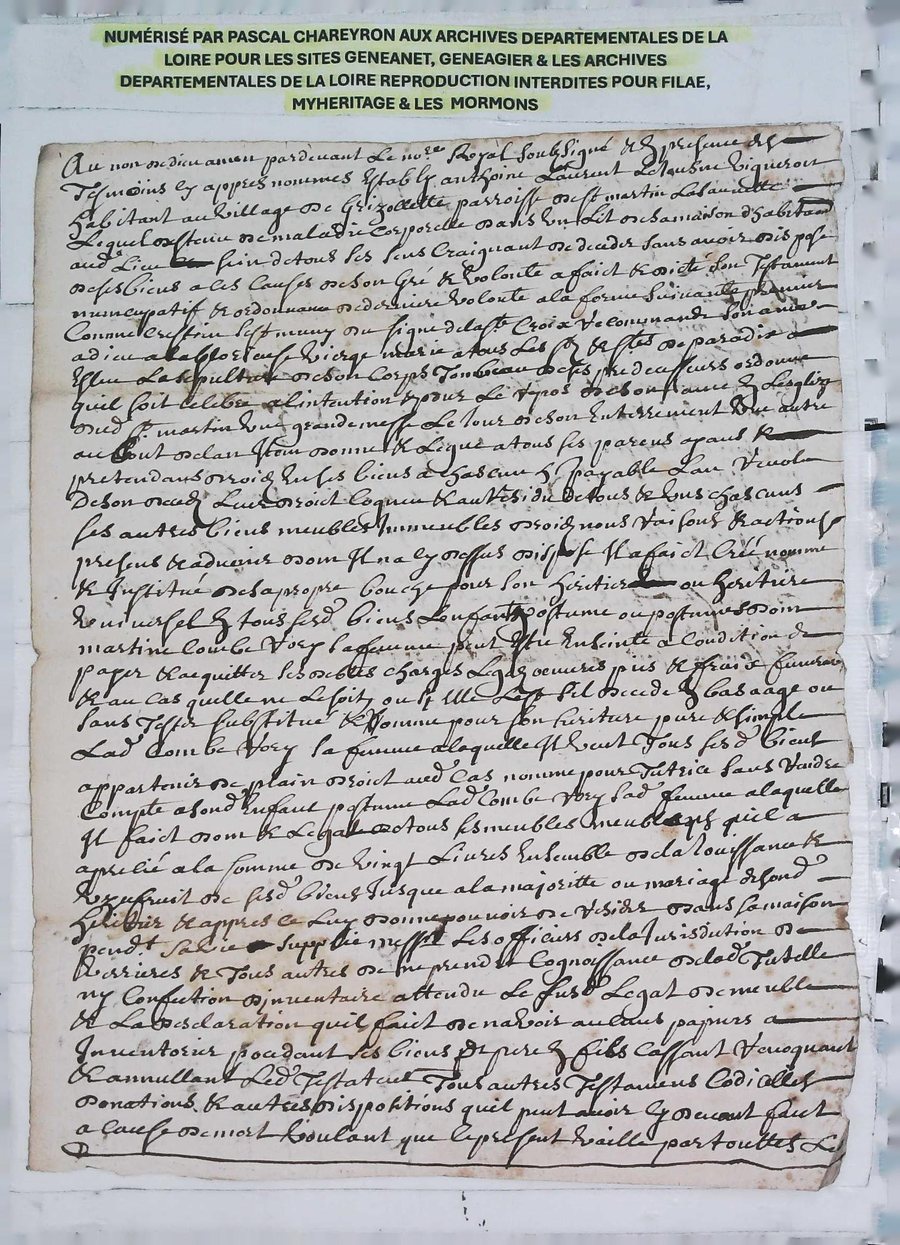 NUMÉRISÉ PAR PASCAL CHAREYRON AUX ARCHIVES DEPARTEMENTALES DE LA
LOIRE POUR LES SITES GENEANET, GENEAGIER & LES ARCHIVES
DEPARTEMENTALES DE LA LOIRE REPRODUCTION INTERDITES POUR FILAE,
MYHERITAGE & LES MORMONS
Au nom de dieu amen pardevant Le no.re Royal soubsigné & En presence des
Tesmoins Cy appres nommes Estably anthoine Laurent vigneron
habitant au village de Grizollette parroisse de st martin La sauvetté
Lequel de maladie Corporelle dans un Lit de sa maison d'habitaon
aud. Lieu sain de tous ses sens Craignant de deceder sans avoir dispose
de ses biens a ces Causes de son Gré & volonté a faict & dicté son Testament
nuncupatif & ordonnance de derniere volonté a la forme suivante premier
Comme Crestien s'est muny du signe de la ste Croix Recommandé son ame
a dieu a la glorieuse vierge marie a tous Les sts & stes de paradis
Eslu La sepulture de son Corps Tombeau de ses predecesseurs ordonne
quil soit celebré a l'intention & pour Le repos de son ame En Lesglize
dud. st martin une grande messe Le Jour de son Enterrement une autre
au bout de lan Item donne & Legue a tous ses parens ayans &
pretendans droict En ses biens a chascun payable Lan revolu
De son deces Leur droict cogneu & au residu de tous & uns chascuns
ses autres biens meubles Immeubles droicts noms raisons & actions
presens & advenir dont Il na Cy dessus disposé Il a faict Créé nommé
& Institué de sa propre bouche pour son heritier ou heritiere
universel En tous sesd. biens Lenfant postume ou postumes dont
martine Combe Vory sa femme peut Estre Enseinte a Condition de
payer & acquitter ses debtes charges Legaz oeuvres pies & fraix funerau
& au cas quelle ne Le soit ou si Elle Lest sil decede En bas aage ou
sans Tester substitue & nomme pour son heritiere pure & simple
Lad. Combe Vory sa femme a laquelle Il veut Tous sesd. biens
appartenir de plain droict aud. Cas nomme pour Tutrice sans rendre
Compte a sond. Enfant postume Lad. Combe Vory sad. femme a laquelle
Il faict don & Legat de tous ses meubles quil a
aprecié a la somme de vingt Livres Ensemble de la Jouissance &
Uzufruit de sesd. biens Jusque a la majoritte ou mariage de sond.
heritier & appres ce Luy donne pouvoir de resider dans sa maison
pend.t sa vie supplie mess.rs Les officiers de la Jurisdiction de
Verrieres & Tous autres de ne prendre Cognoissance de lad. Tutelle
ny Confection dinventaire attendu Le susd. Legat de meuble
& La desclaration quil faict de navoir aucuns papiers a
Inventorier pocedant ses biens de pere En fils Cassant revoquant
& annullant Led. Testateur Tous autres Testamens Codicilles
donations & autres dispositions quil peut avoir Cy devant faict
a Cause de mort voulant que le present vaille par touttes Le